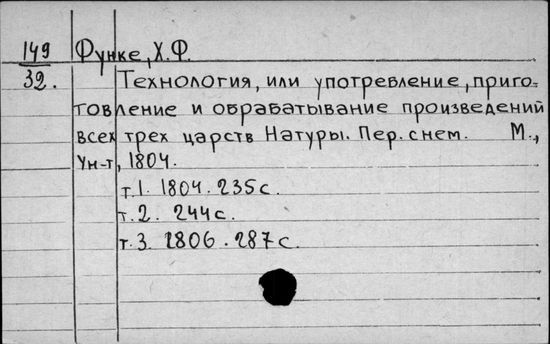 149 Функе, Х.Ф.
32. Технология, или употребление, приго-
товление и обрабатывание произведений
всех трех царств Натуры. Пер. с нем. М.,
Ун-т, 1804.
т.1. 1804. 235 с.
т.2. 244 с.
т.3. 1806. 287 с.